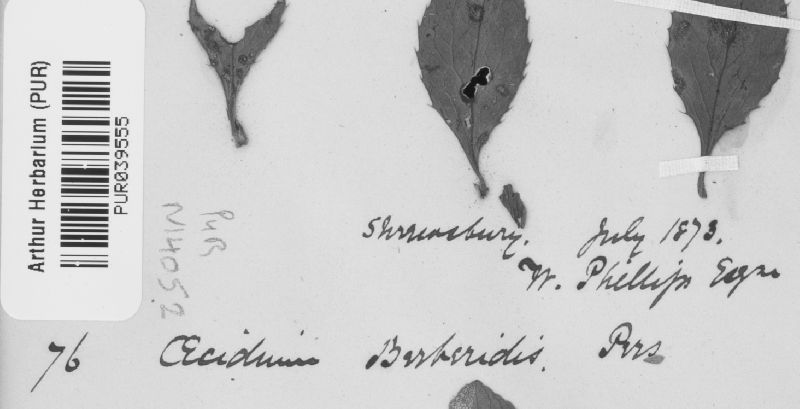 Arthur Herbarium (PUR)
PUR039555
PUR
N14052
Shrewsbury. July 1873.
W. Phillips Esqre
76 Œcidium Berberidis. Pers